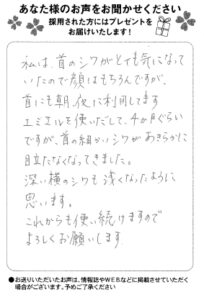 あなた様のお声をお聞かせください
採用された方にはプレゼントを
お届けいたします!
私は、首のシワがとても気になって
いたので顔はもちろんですが、
首にも朝、夜に利用してます
エミエルを使いだして、4か月ぐらい
ですが、首の細かいシワがあきらかに
目立たなくなってきました。
深い横のシワも浅くなったように
思います。
これからも使い続けますので
よろしくお願いします
●お送りいただいたお声は、情報誌やWEBなどに掲載させていただく
場合がございます。予めご了承ください